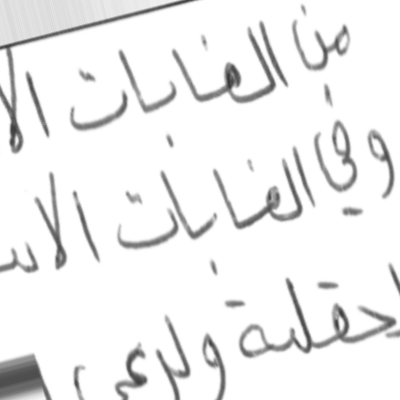 من الغابات الا
وفي الغابات الاس
حقلية ولرعي